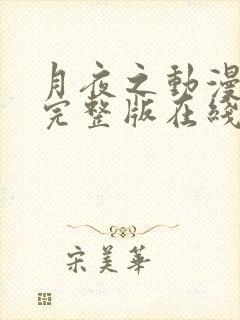 月夜之動漫
完整版在綫
宋美華